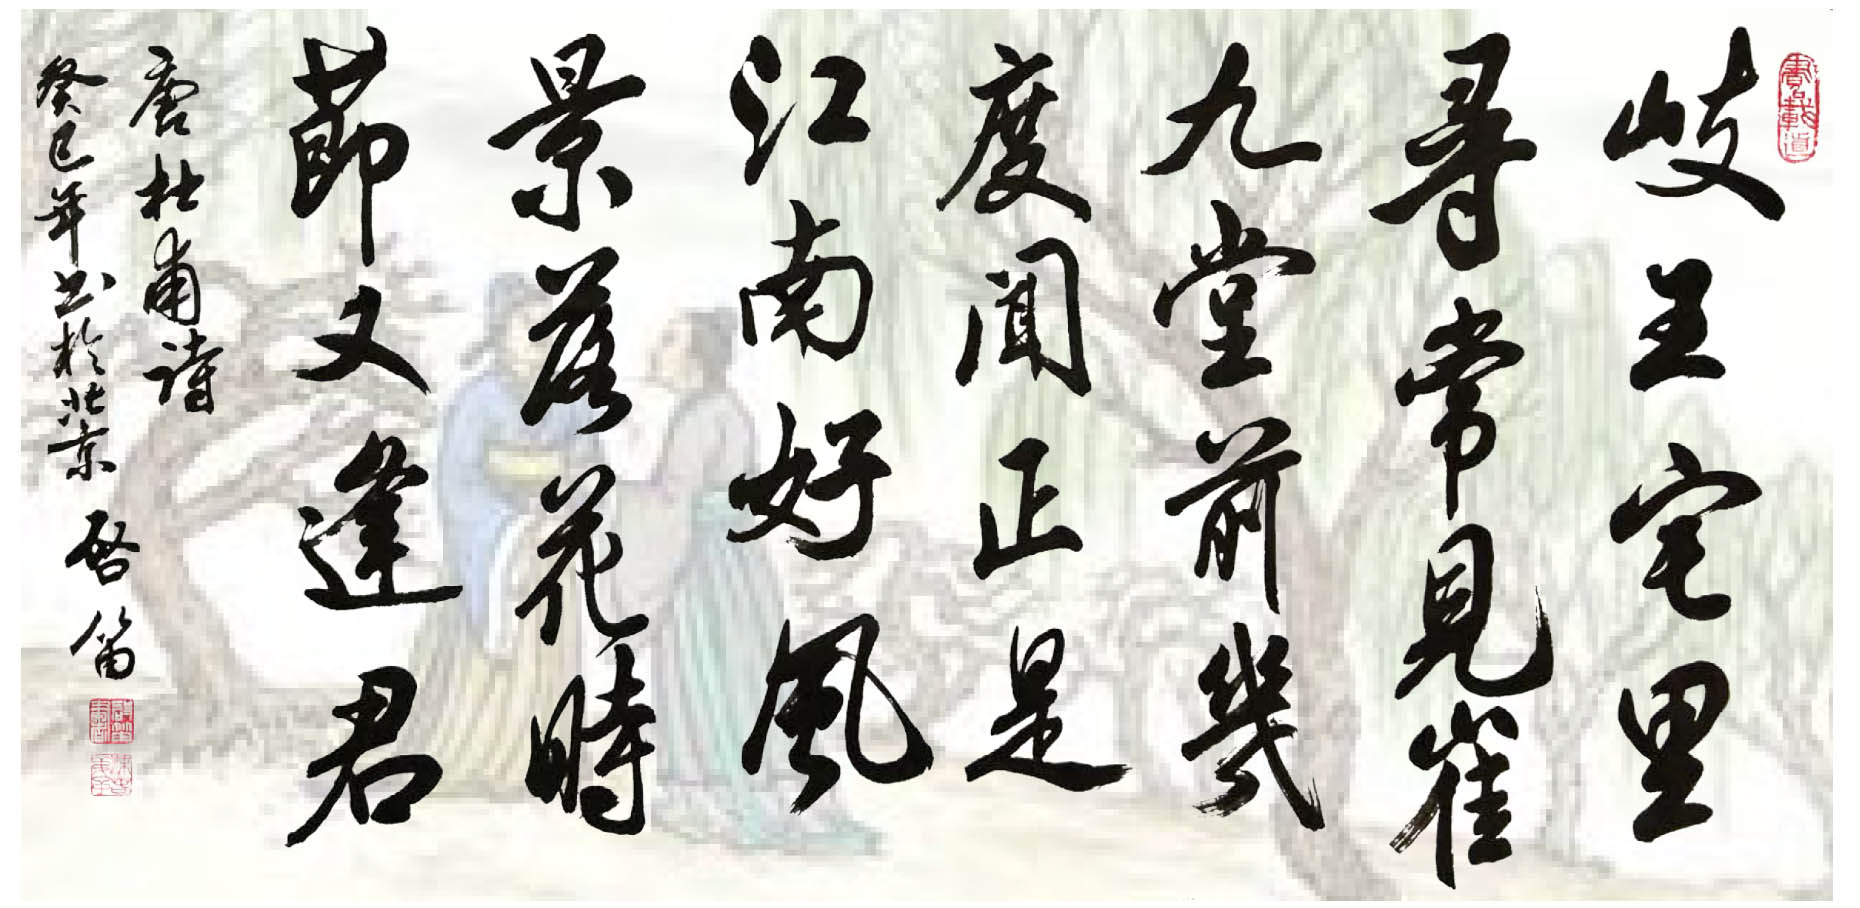 書載道
岐王宅里
尋常見崔
九堂前幾
度聞正是
江南好風
景落花時
節又逢君
唐杜甫詩
癸巳年书於北京 啓笛